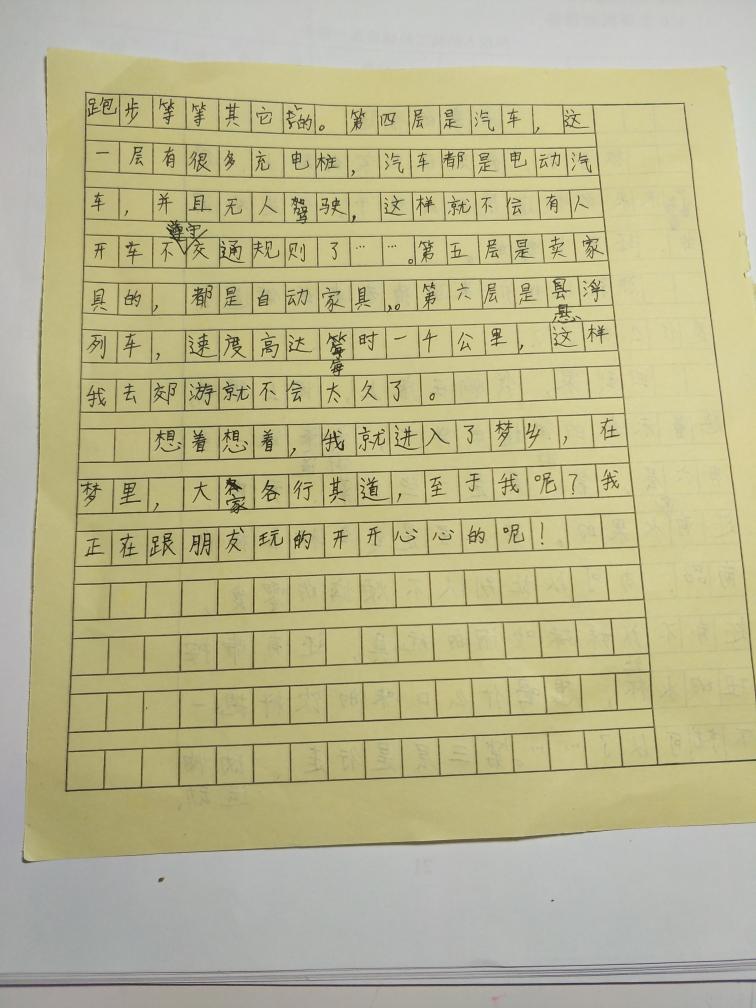 跑步等等其它的。第四层是汽车，这
一层有很多充电桩，汽车都是电动汽
车，并且无人驾驶，这样就不会有人
开车不遵守交通规则了……。第五层是卖家
具的，都是自动家具。第六层是悬浮
列车，速度高达每时一千公里，这样
我去郊游就不会太久了。
想着想着，我就进入了梦乡，在
梦里，大家各行其道，至于我呢？我
正在跟朋友玩的开开心心的呢！